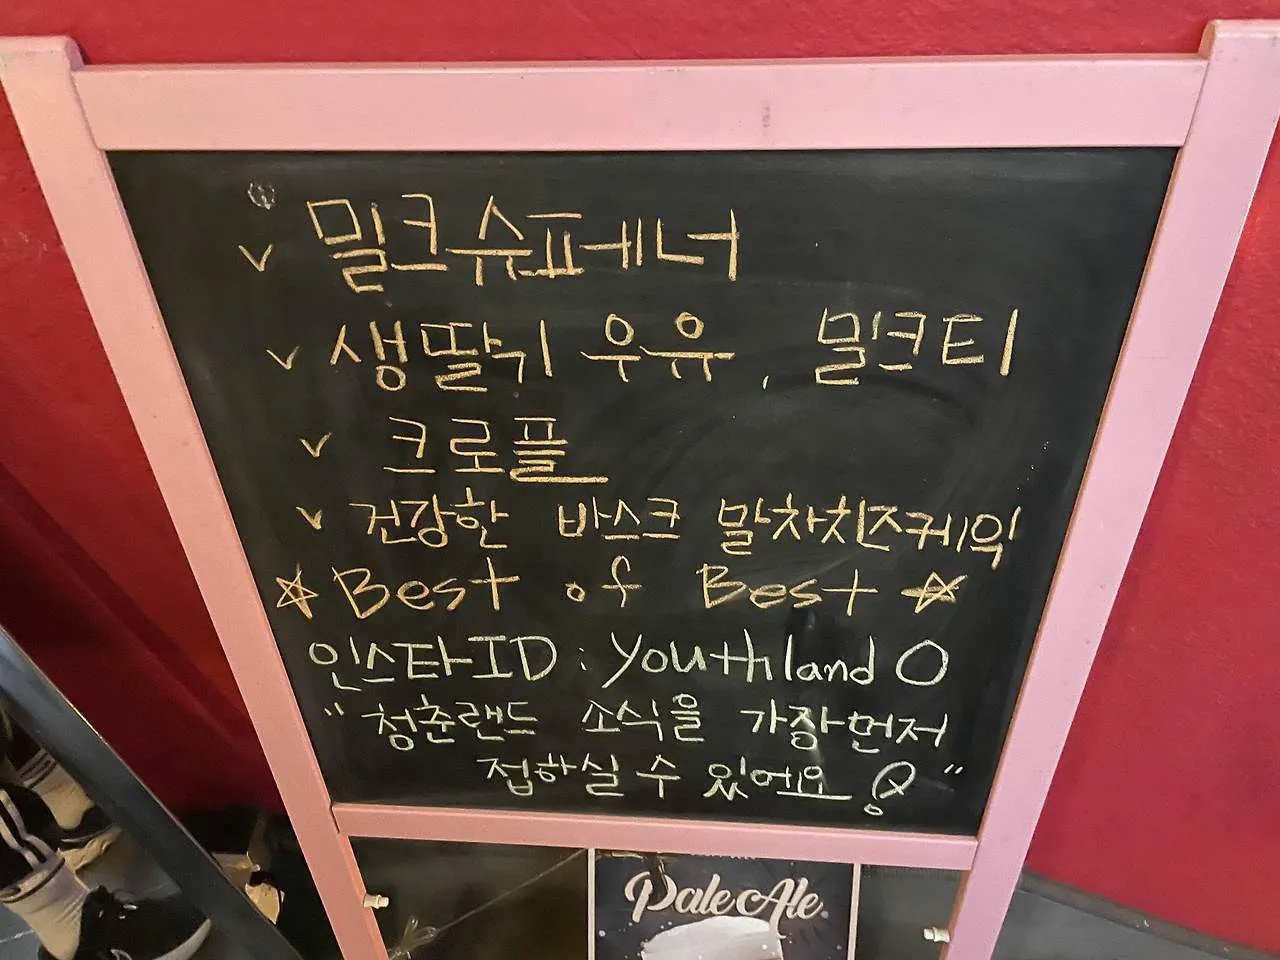 v 밀크슈페너
v 생딸기 우유, 밀크티
v 크로플
v 건강한 바스크 말차치즈케익
☆ Best of Best ☆
인스타ID : youthland O
" 청춘랜드 소식을 가장먼저
접하실 수 있어요! "
Pale Ale.